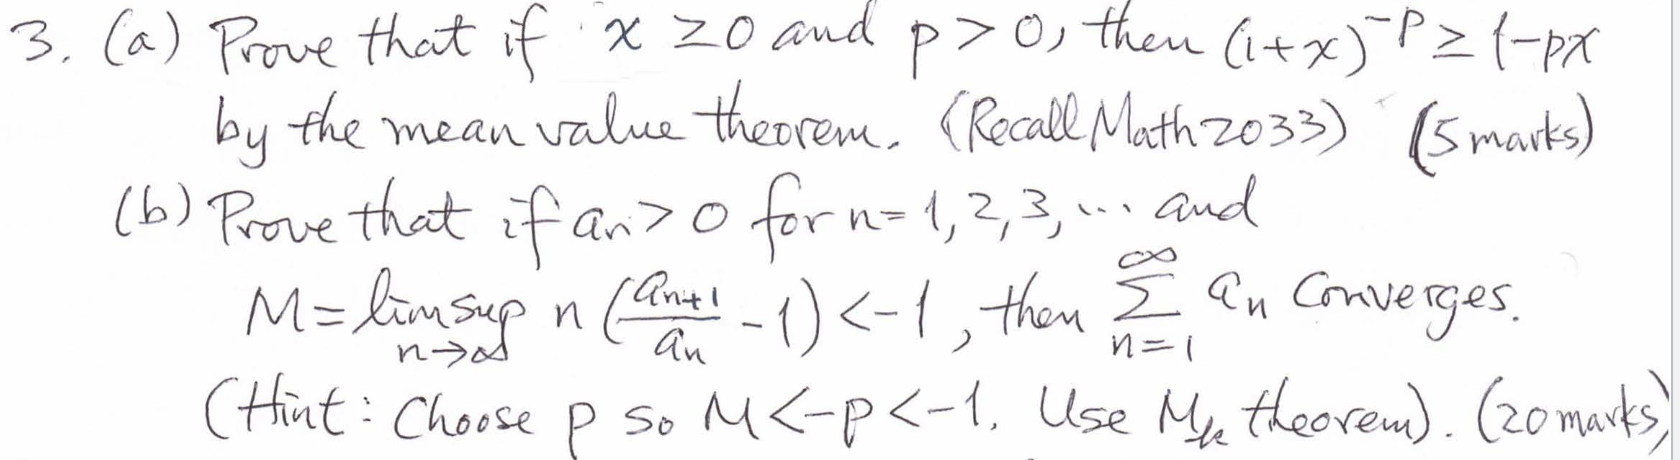 3. (a) Prove that if x ≥ 0 and p > 0, then (1+x)^{-p} ≥ 1-px
by the mean value theorem. (Recall Math 2033) (5 marks)
(b) Prove that if a_n > 0 for n = 1, 2, 3, ... and
M = limsup_{n→∞} n (a_{n+1}/a_n - 1) < -1, then ∑_{n=1}^{∞} a_n converges.
(Hint: Choose p so M < -p < -1. Use M_k theorem). (20 marks)